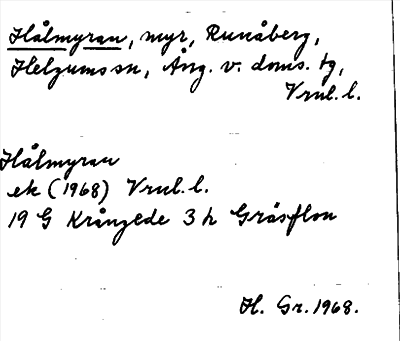 Hålmyran, myr, Runåberg,
Helgums sn, Ång. v. doms. tg,
Vrul. l.
Hålmyran
ek (1968) Vrul. l.
19 G Krångede 3 h Gråsjflon
H. Gr. 1968.